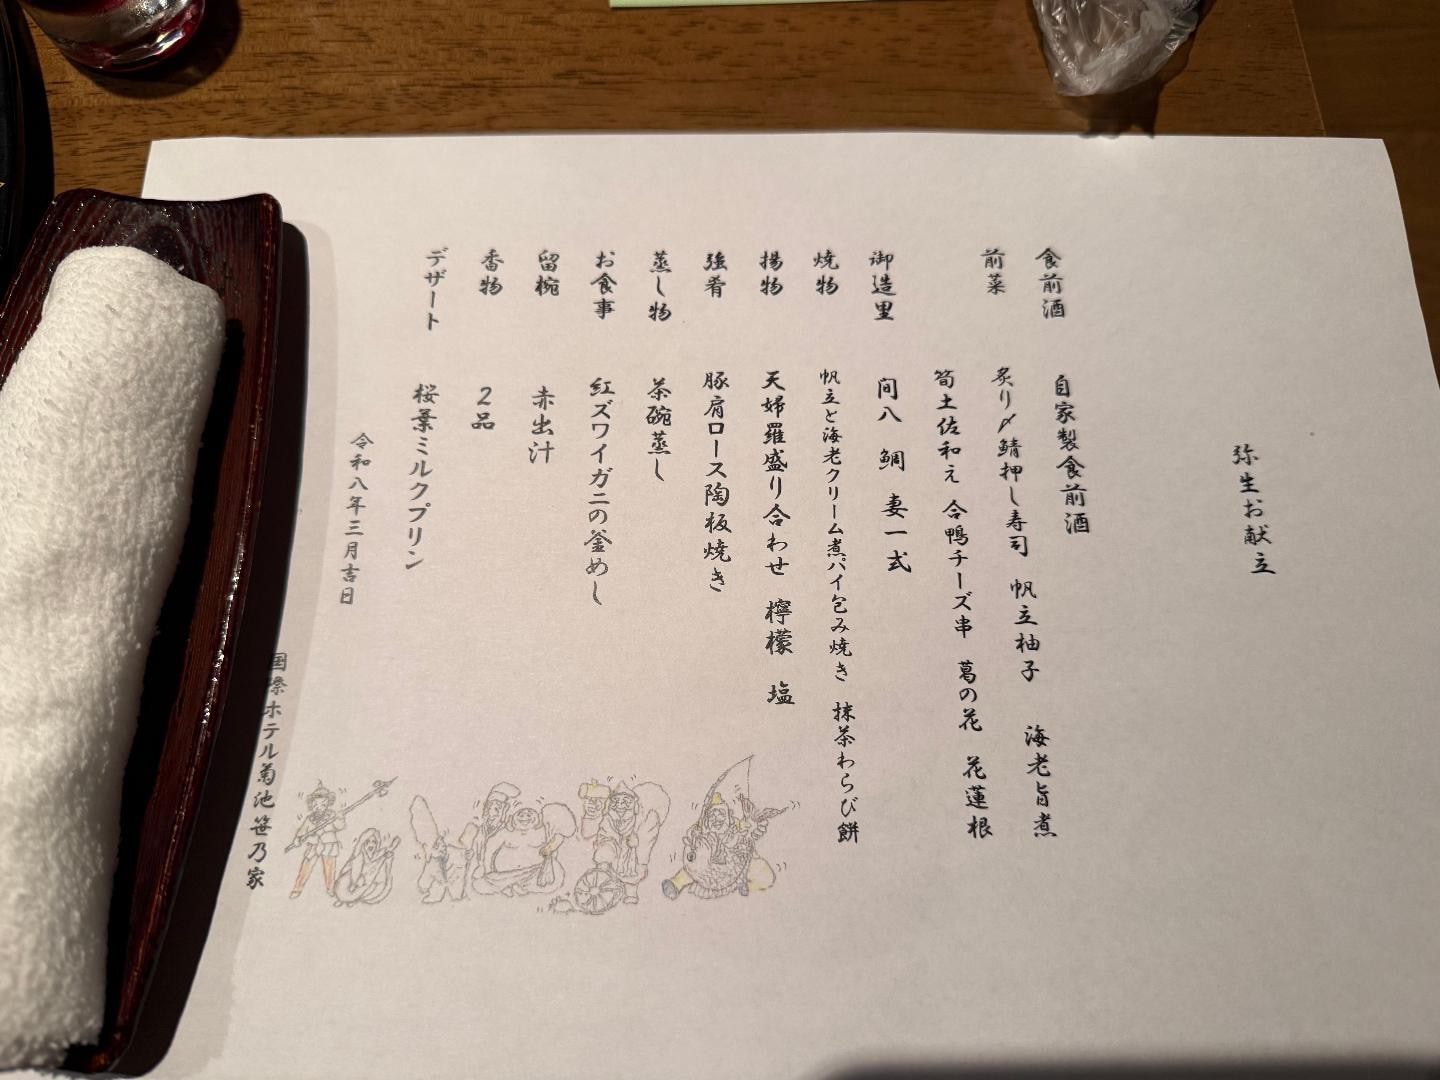 弥生お献立
食前酒 自家製食前酒
前菜 炙り〆鯖押し寿司 帆立柚子 海老旨煮
筍土佐和え 合鴨チーズ串 葛の花 花蓮根
御造里 間八 鯛 妻一式
焼物 帆立と海老クリーム煮パイ包み焼き 抹茶わらび餅
揚物 天婦羅盛り合わせ 檸檬 塩
強肴 豚肩ロース陶板焼き
蒸し物 茶碗蒸し
お食事 紅ズワイガニの釜めし
留椀 赤出汁
香物 2品
デザート 桜葉ミルクプリン
令和八年三月吉日
国際ホテル菊池笹乃家